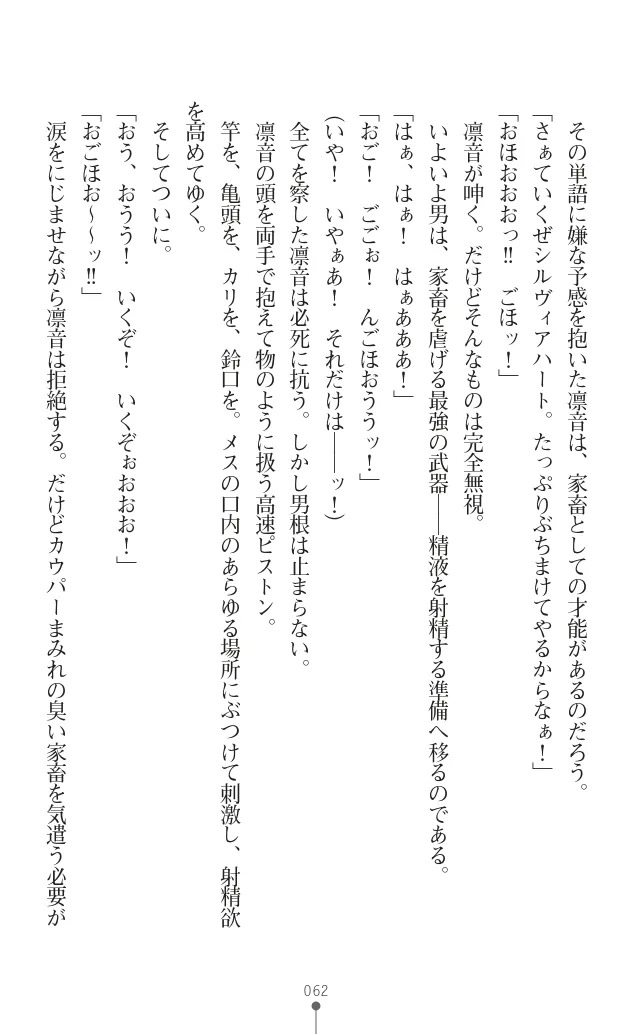 その単語に嫌な予感を抱いた凛音は、家畜としての才能があるのだろう。
「さぁていくぜシルヴィアハート。たっぷりぶちまけてやるからなぁ！」
「おほおおおっ!!　ごほッ！」
凛音が呻く。だけどそんなものは完全無視。
いよいよ男は、家畜を虐げる最強の武器――精液を射精する準備へ移るのである。
「はぁ、はぁ！　はぁあああ！」
「おご！　ごごぉ！　んごほおううッ！」
（いや！　いやぁあ！　それだけは――ッ！）
全てを察した凛音は必死に抗う。しかし男根は止まらない。
凛音の頭を両手で抱えて物のように扱う高速ピストン。
竿を、亀頭を、カリを、鈴口を。メスの口内のあらゆる場所にぶつけて刺激し、射精欲
を高めてゆく。
そしてついに。
「おう、おうう！　いくぞ！　いくぞぉおおお！」
「おごほお～～ッ!!」
涙をにじませながら凛音は拒絶する。だけどカウパーまみれの臭い家畜を気遣う必要が
062